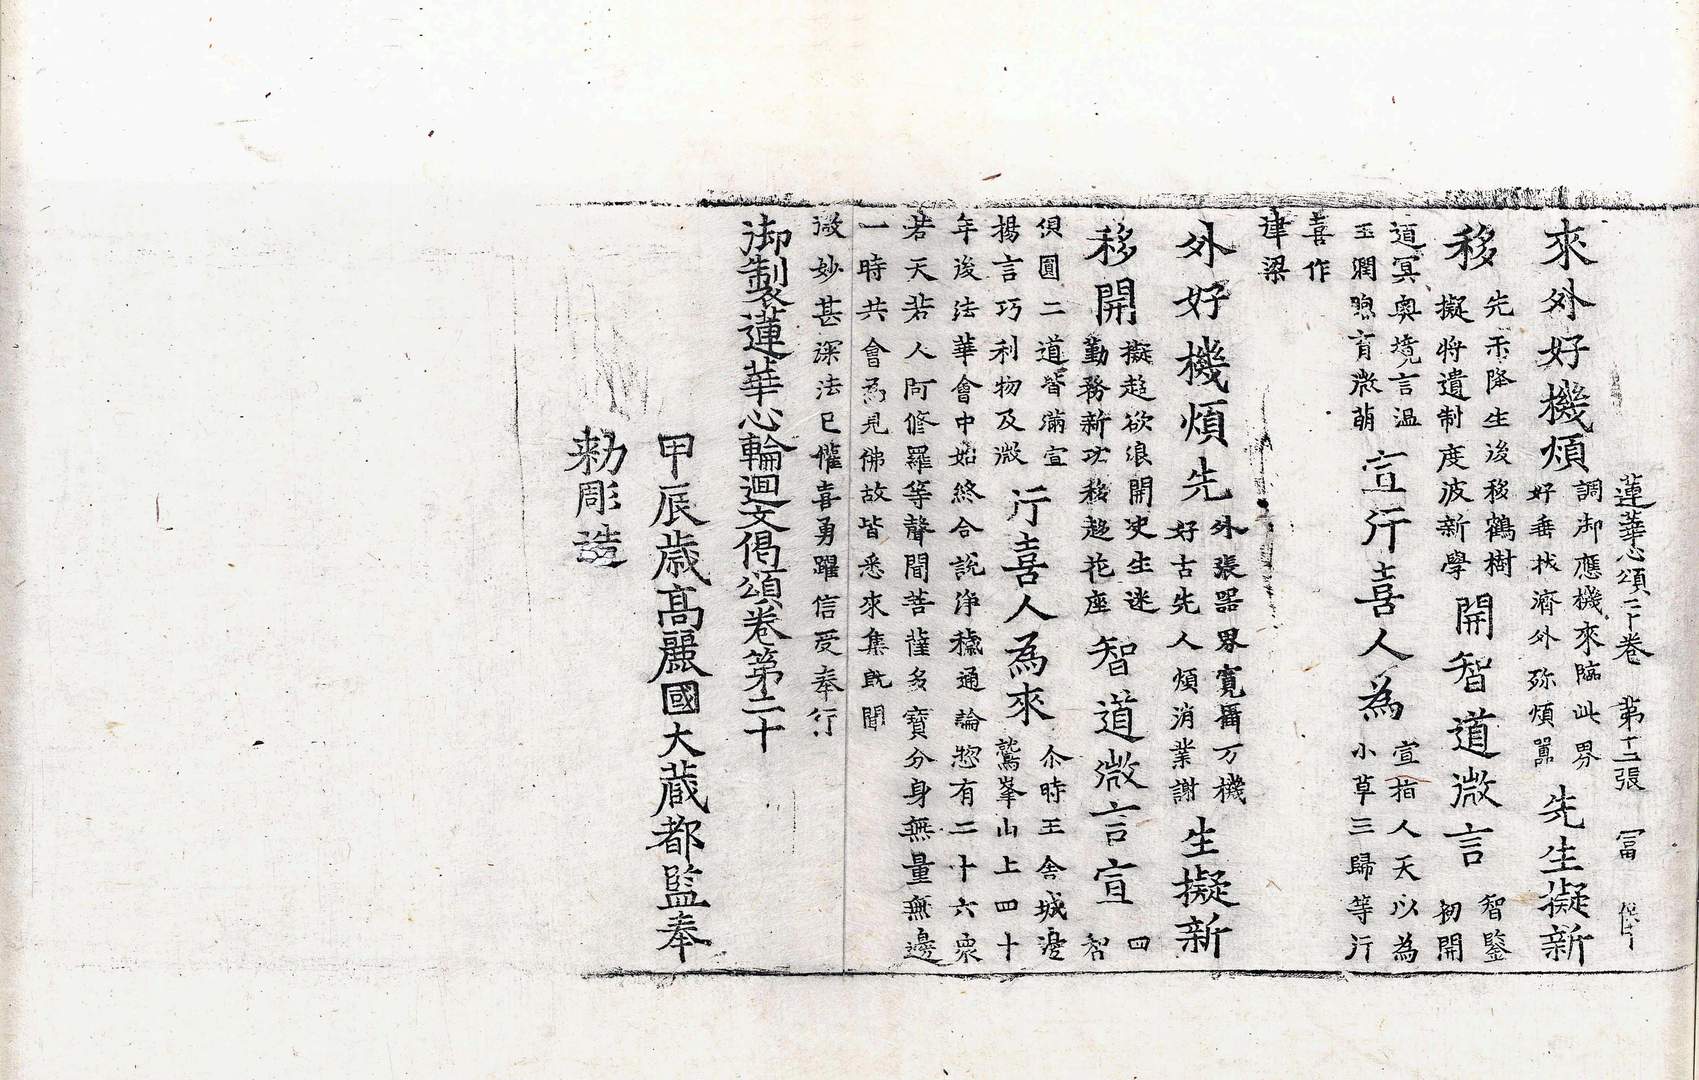 蓮華心頌二十卷 第十二張 冨
來外好機煩 調御應機來臨此界 好垂拔濟外弥煩嚣 先生擬新
移 先示降生後移鶴樹 擬將遺制度波新學 開智道微言 智鑒 初開
道冥奥境言温 玉潤煦育微萌 宣行喜人為 宣指人天以為 小草三歸等行
喜作 津梁
外好機煩先 外張器界寬攝万機 好古先人煩消業謝 生擬新
移開 擬超欲浪開 生迷 勤務新功移趍花座 智道微言宣 四 智
俱圓二道皆滿宣 揚言巧利物及微 行喜人為來 尒時王舍城邊 鷲峯山上四十
年後法華會中始終合說浄穢通論惣有二十六衆
若天若人阿修羅等聲聞菩薩多寶分身無量無邊
一時共會為見佛故皆悉來集旣聞
微妙甚深法已懽喜勇躍信受奉行
御製蓮華心輪迴文偈頌卷第二十
甲辰歳高麗國大蔵都監奉
勑彫造